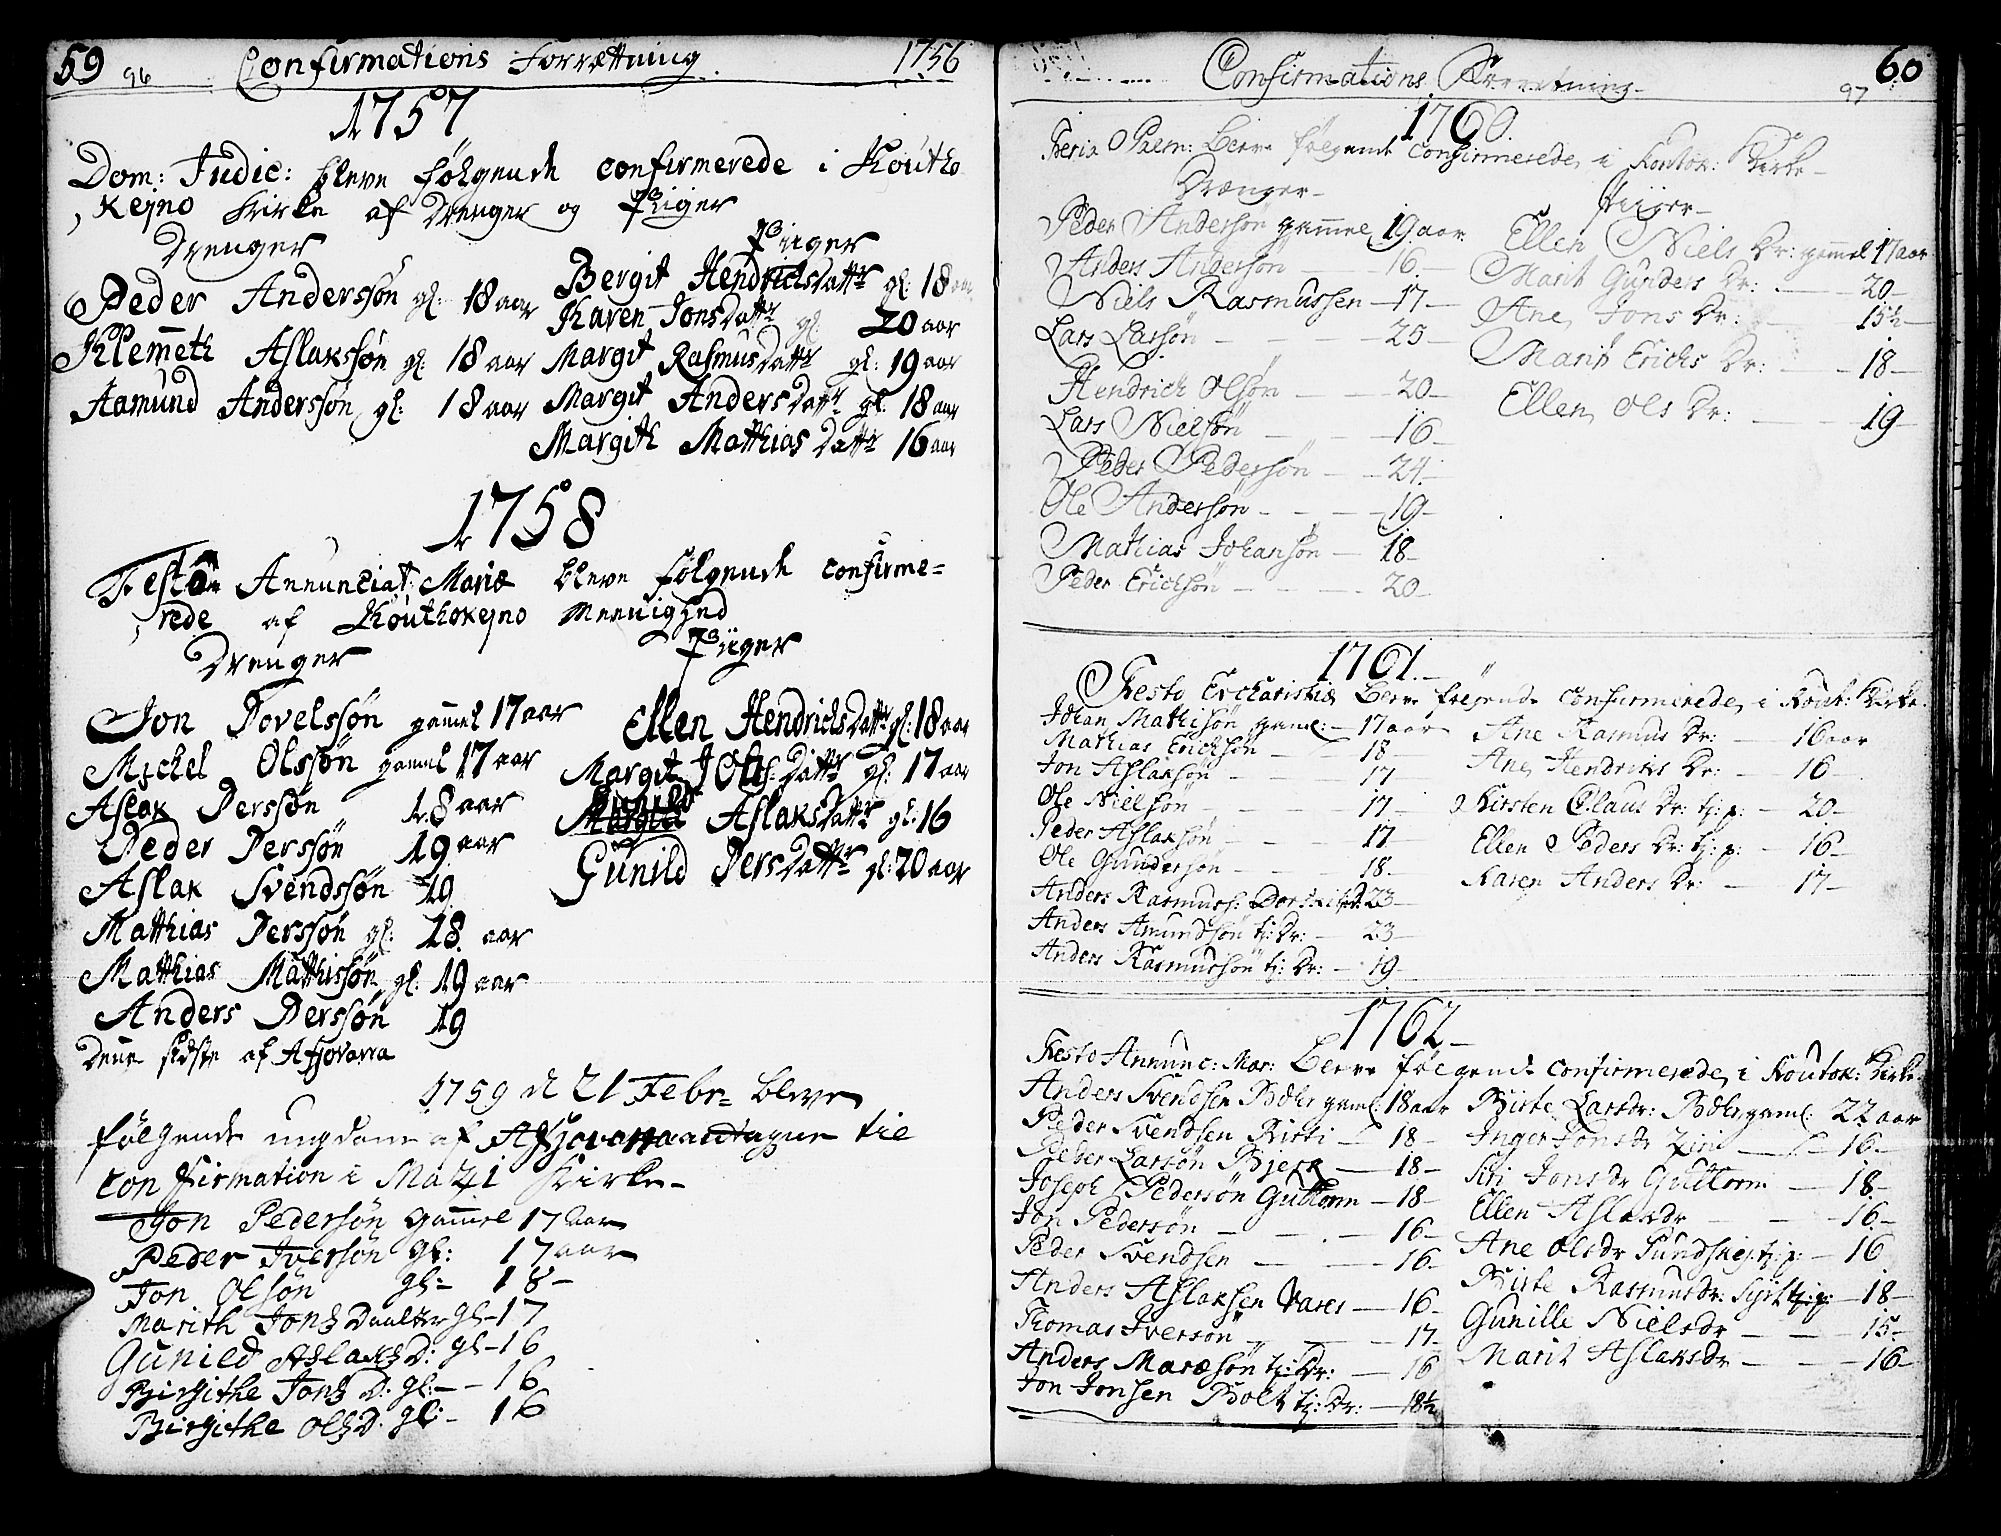 59 96 Confirmations Forrættning 1756
1757
Dom: Judic: bleve følgende confirmerede i Koutho
kejno Kirke af Drenger og Piiger
Drenger
Peder Anderssøn gl: 18 aar
Klemeth Aslakssøn gl: 18 aar
Aamund Anderssøn gl: 18 aar
Piiger
Bergit Hendrichsdattr gl: 18 aar
Karen Jonsdattr gl: 20 aar
Margit Rasmusdattr gl: 19 aar
Margit Andersdattr gl: 18 aar
Margith Matthiasdattr 16 aar
1758
Festo Annunciat: Mariæ bleve følgende confirme=
rede af Kouthokejno Meenighed
Drenger
Jon Povelssøn gammel 17 aar
Michel Olssøn gamel 17 aar
Aslak Perssøn 18 aar
Peder Perssøn 19 aar
Aslak Svendssøn 19
Matthias Perssøn gl: 18 aar
Matthias Mathissøn gl: 19 aar
Anders Perssøn 19
Denne sidste af Afjovarra
Piiger
Ellen Hendrichsdattr gl: 18 aar
Margit Olsdattr gl: 17 aar
Aslaksdattr gl: 16
Gunild Persdattr gl: 20 aar
1759 d 21 Febr= bleve
følgende ungdom af antagne til
confirmation i Mazi Kirke-
Jon Pedersøn gammel 17 aar
Peder Iversøn gl: 17 aar
Jon Olsøn gl= 18-
Marith Jons Daatter gl- 17
Gunild Aslaks D: gl- 16
Birgithe Jons D. gl:- - 16
Birgithe Ols D. gl:- 16
Confirmations Forretning- 97 60
1760.
Feria Palm: bleve følgende confirmerede i Koutok: Kirke-
Drænger-
Peder Andersøn gammel 19 aar
Anders Andersøn 16
Niels Rasmussen - 17-
Lars Larsøn - - - 25-
Hendrich Olsøn - - 20-
Lars Nielsøn - - 16-
Peder Pedersøn - - 24-
Ole Andersøn - - - 19-
Mathias Johansøn - 18-
Peder Erichsøn - - - 20-
Piiger-
Ellen Niels Dr: gammel 17 aar
Marit Gunders Dr: - 20-
Ane Jons Dr: - 15½-
Marit Erichs Dr: - 18-
Ellen Ols Dr: - - 19-
1761.-
Festo Eucharistiæ bleve følgende confirmerede i Kout: Kirke.
Johan Mathisøn gaml:- 17 aar
Mathias Erichsøn - - 18
Jon Aslaksøn - - 17
Ole Nielsøn - - 17-
Peder Aslaksøn - - 17-
Ole Gundersøn - - 18-
Anders Rasmuss: 23-
Anders Amundsøn tj: Dr: - 23-
Anders Rasmussøn tj: Dr: - 19-
Ane Rasmus Dr: - 16 aar
Ane Hendrichs Dr: - 16-
Kirsten Claus Dr: tj: p: - 20-
Ellen Peders Dr: tj: p: - 16-
Karen Anders Dr: - 17-
1762-
Festo Annunc: Mar: bleve følgende confirmerede i Koutok: Kirke.
Anders Svendsen gaml: 18 aar
Peder Svendsen Kitti - 18-
Peder Larsøn - 18-
Joseph Pedersøn Guttorm - 18-
Jon Pedersøn - - 16-
Peder Svendsen - - 16-
Anders Aslaksen Vares - 16-
Thomas Iversøn - - 17-
Anders tj: Dr: - 16
Jon Jonsen Bolt tj: Dr: - 18½
Birte Larsdr: gaml: 22 aar
Inger Jonsdr - 16-
Siri Jonsdr Guttorm - 18-
Ellen Aslaksdr - - 16-
Ane Olsdr tj: p: - 16
Birte Rasmusdr: tj: p: - 18-
Gunille Nielsdr - - 15-
Marit Aslaksdr - - - 16-